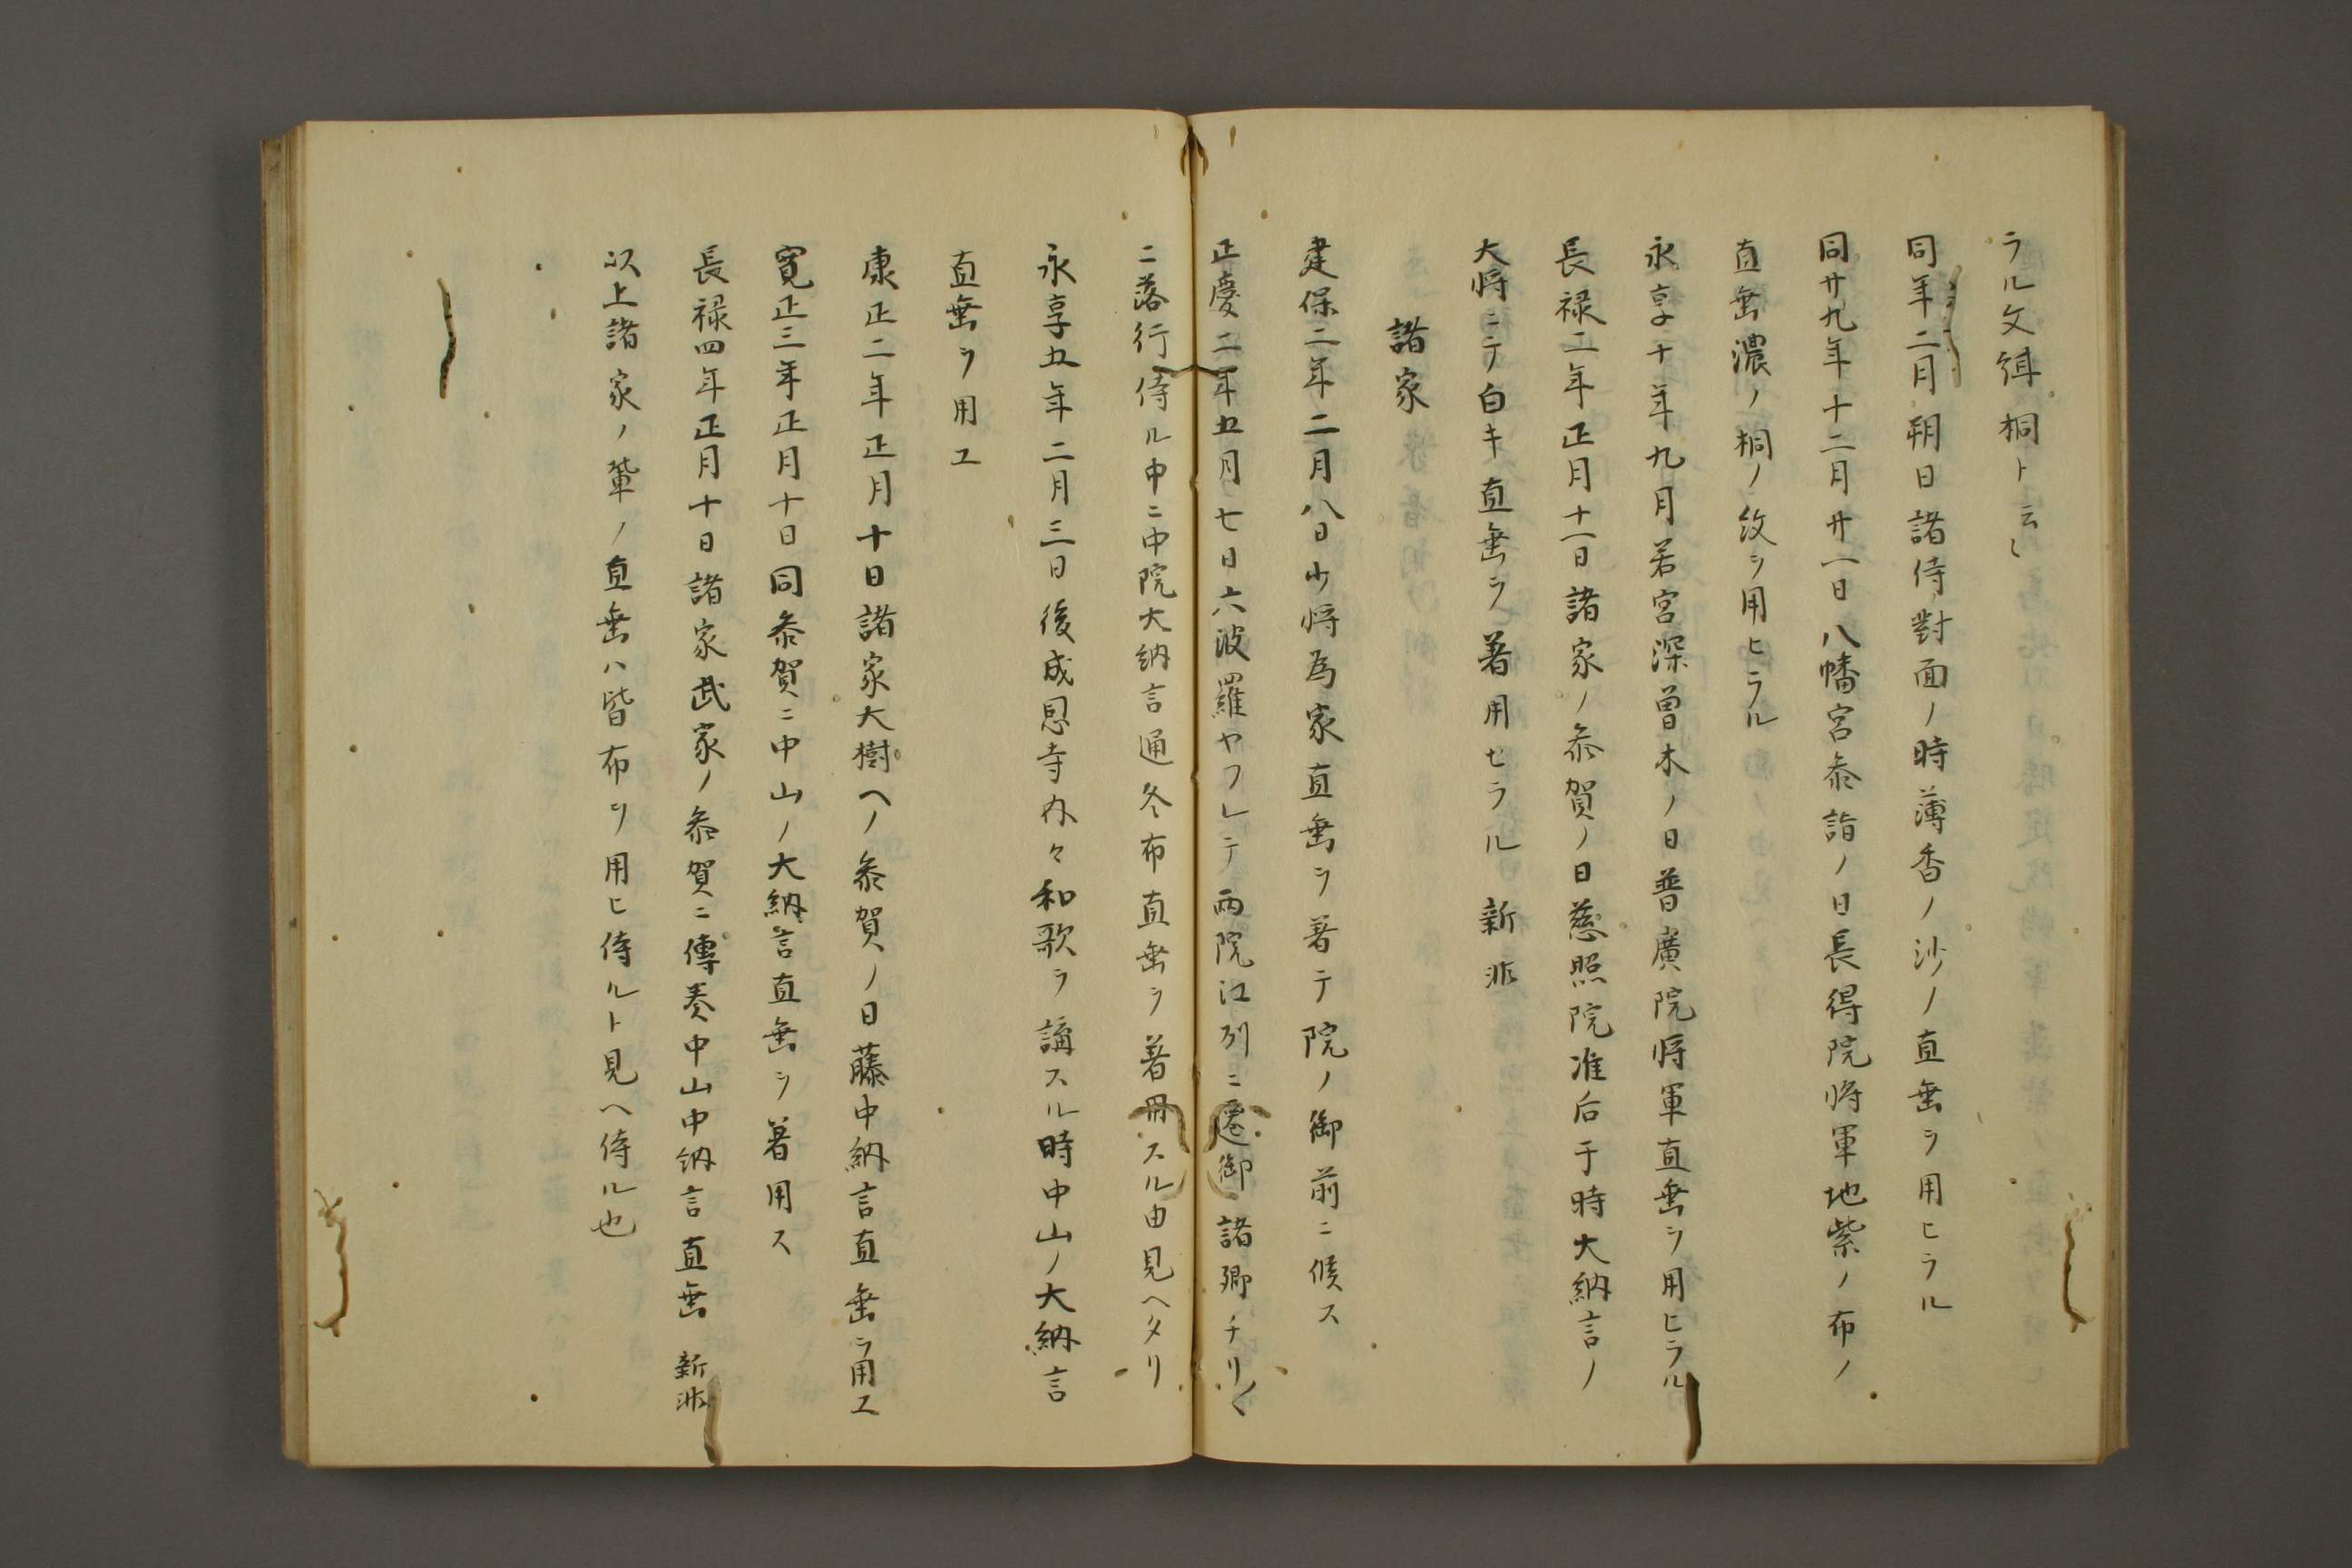 ラル文緯桐ト云〻
同年二月朔日諸侍對面ノ時薄香ノ沙ノ直垂ヲ用ヒラル
同廿九年十二月廿一日八幡宮叅詣ノ日長得院将軍地紫ノ布ノ
直垂濃ノ桐ノ紋ヲ用ヒラル
永享十年九月若宮深曽木ノ日普廣院将軍直垂ヲ用ヒラル
長禄二年正月十一日諸家ノ叅賀ノ日慈照院准后于時大納言ノ
大将ニテ白キ直垂ヲ著用セラル 新
諸家
建保二年二月八日少将為家直垂ヲ著テ院ノ御前ニ候ス
正慶二年五月七日六波羅ヤフレテ両院江列ニ遷御諸卿チリ〱
ニ落行侍ル中ニ中院大納言通冬布直垂ヲ著用スル由見ヘタリ
永享五年二月三日後成恩寺内々和歌ヲ講スル時中山ノ大納言
直垂ヲ用ユ
康正二年正月十日諸家大樹ヘノ叅賀ノ日藤中納言直垂ヲ用ユ
寛正三年正月十日同叅賀ニ中山ノ大納言直垂ヲ著用ス
長禄四年正月十日諸家武家ノ叅賀ニ傳奏中山中納言直垂 新
以上諸家ノ輩ノ直垂ハ皆布ヲ用ヒ侍ルト見ヘ侍ル也